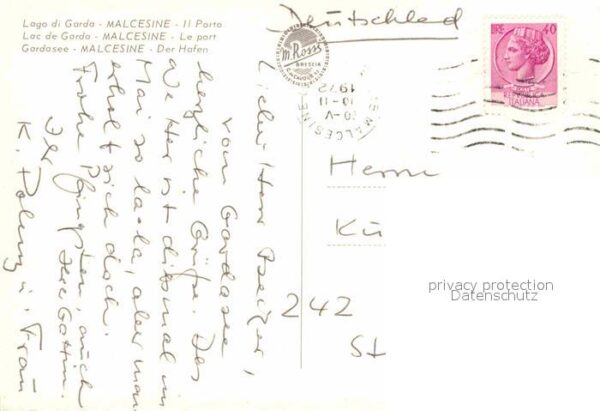 Lago di Garda - MALCESINE - Il Porto
Lac de Garda - MALCESINE - Le port
Gardasee - MALCESINE - Der Hafen
m. Rossi
BRESCIA
Deutschland
LIRE 40
REPUBBLICA
ITALIANA
MALCESINE
10-11
1972
Lieber Herr
vom Gardasee
herzliche Grüße. Das
Wetter ist diesmal im
Mai so la-la, aber man
erholt sich doch.
Frohe Pfingsten, auch
Ihrer Gattin.
Ihr
K. u. Frau
Herrn
Kü
242
St
privacy protection
Datenschutz